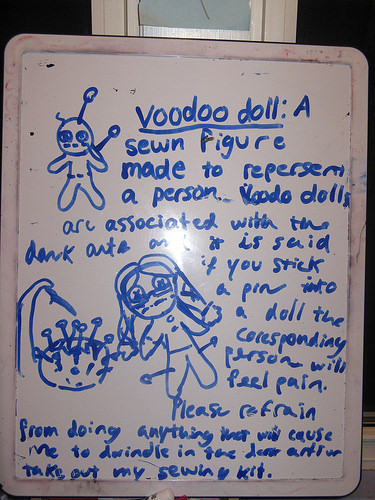 voodoo doll: A
sewn figure
made to repersent
a person. Voodo dolls
are associated with the
dark arts and it is said
if you stick
a pin into
a doll the
coresponding
person will
feel pain.
Please refrain
from doing anything that will cause
me to dwindle in the dark art
take out my sewing kit.